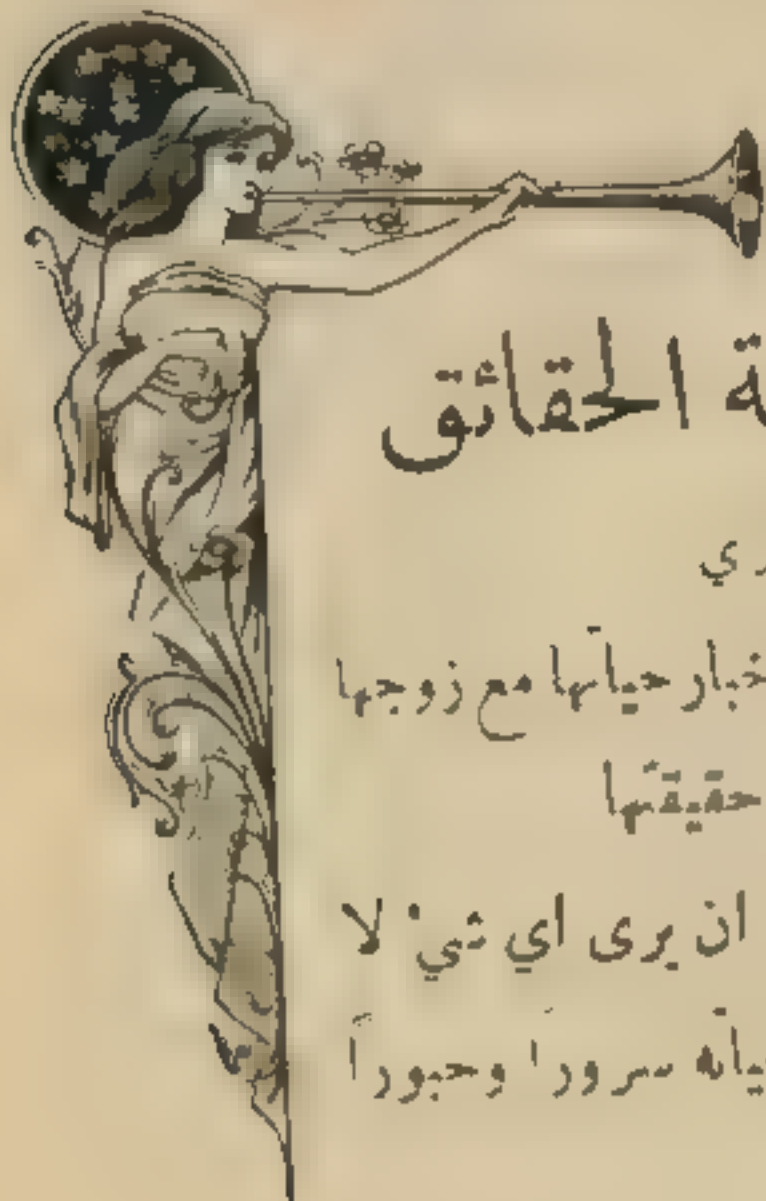 ة الحقائق
ري
خبار حياتها مع زوجها
حقيقتها
ان يرى اي شيء لا
ياته سروراً وحبوراً